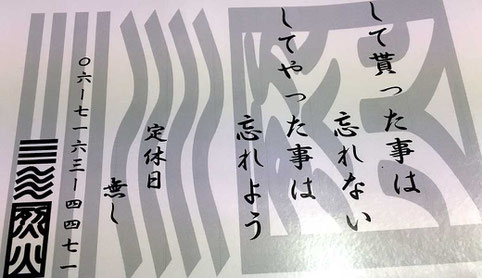 して貰った事は
忘れない
してやった事は
忘れよう
定休日
無し
〇六ー七一六三ー四四七一